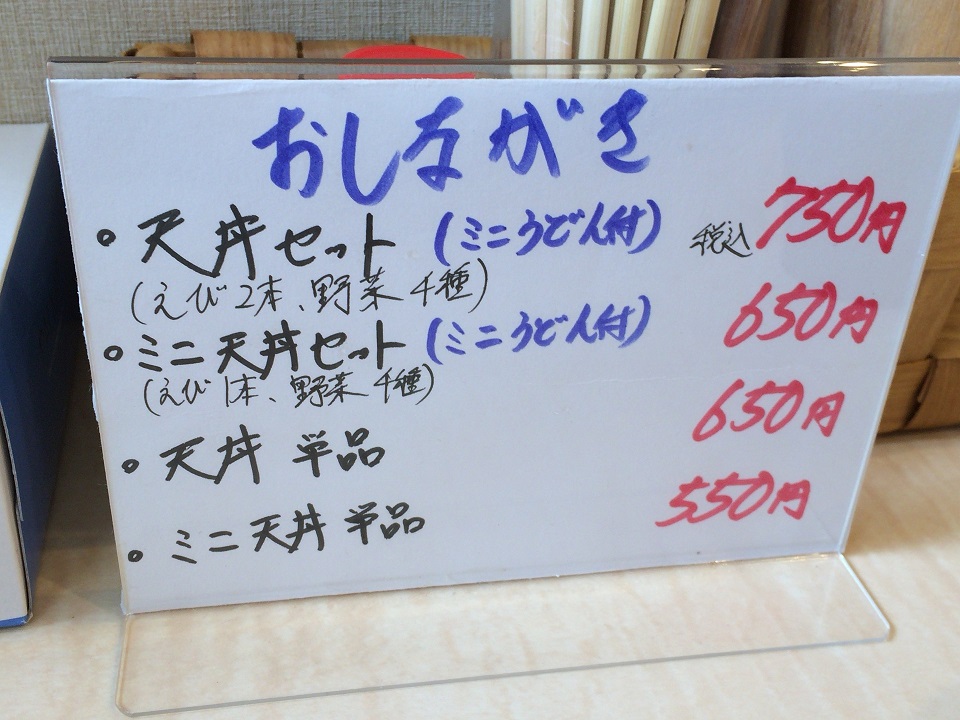 おしながき
。天丼セット (ミニうどん付) 税込 750円
(えび2本、野菜4種)
。ミニ天丼セット (ミニうどん付) 650円
(えび1本、野菜4種)
。天丼 単品 650円
。ミニ天丼 単品 550円